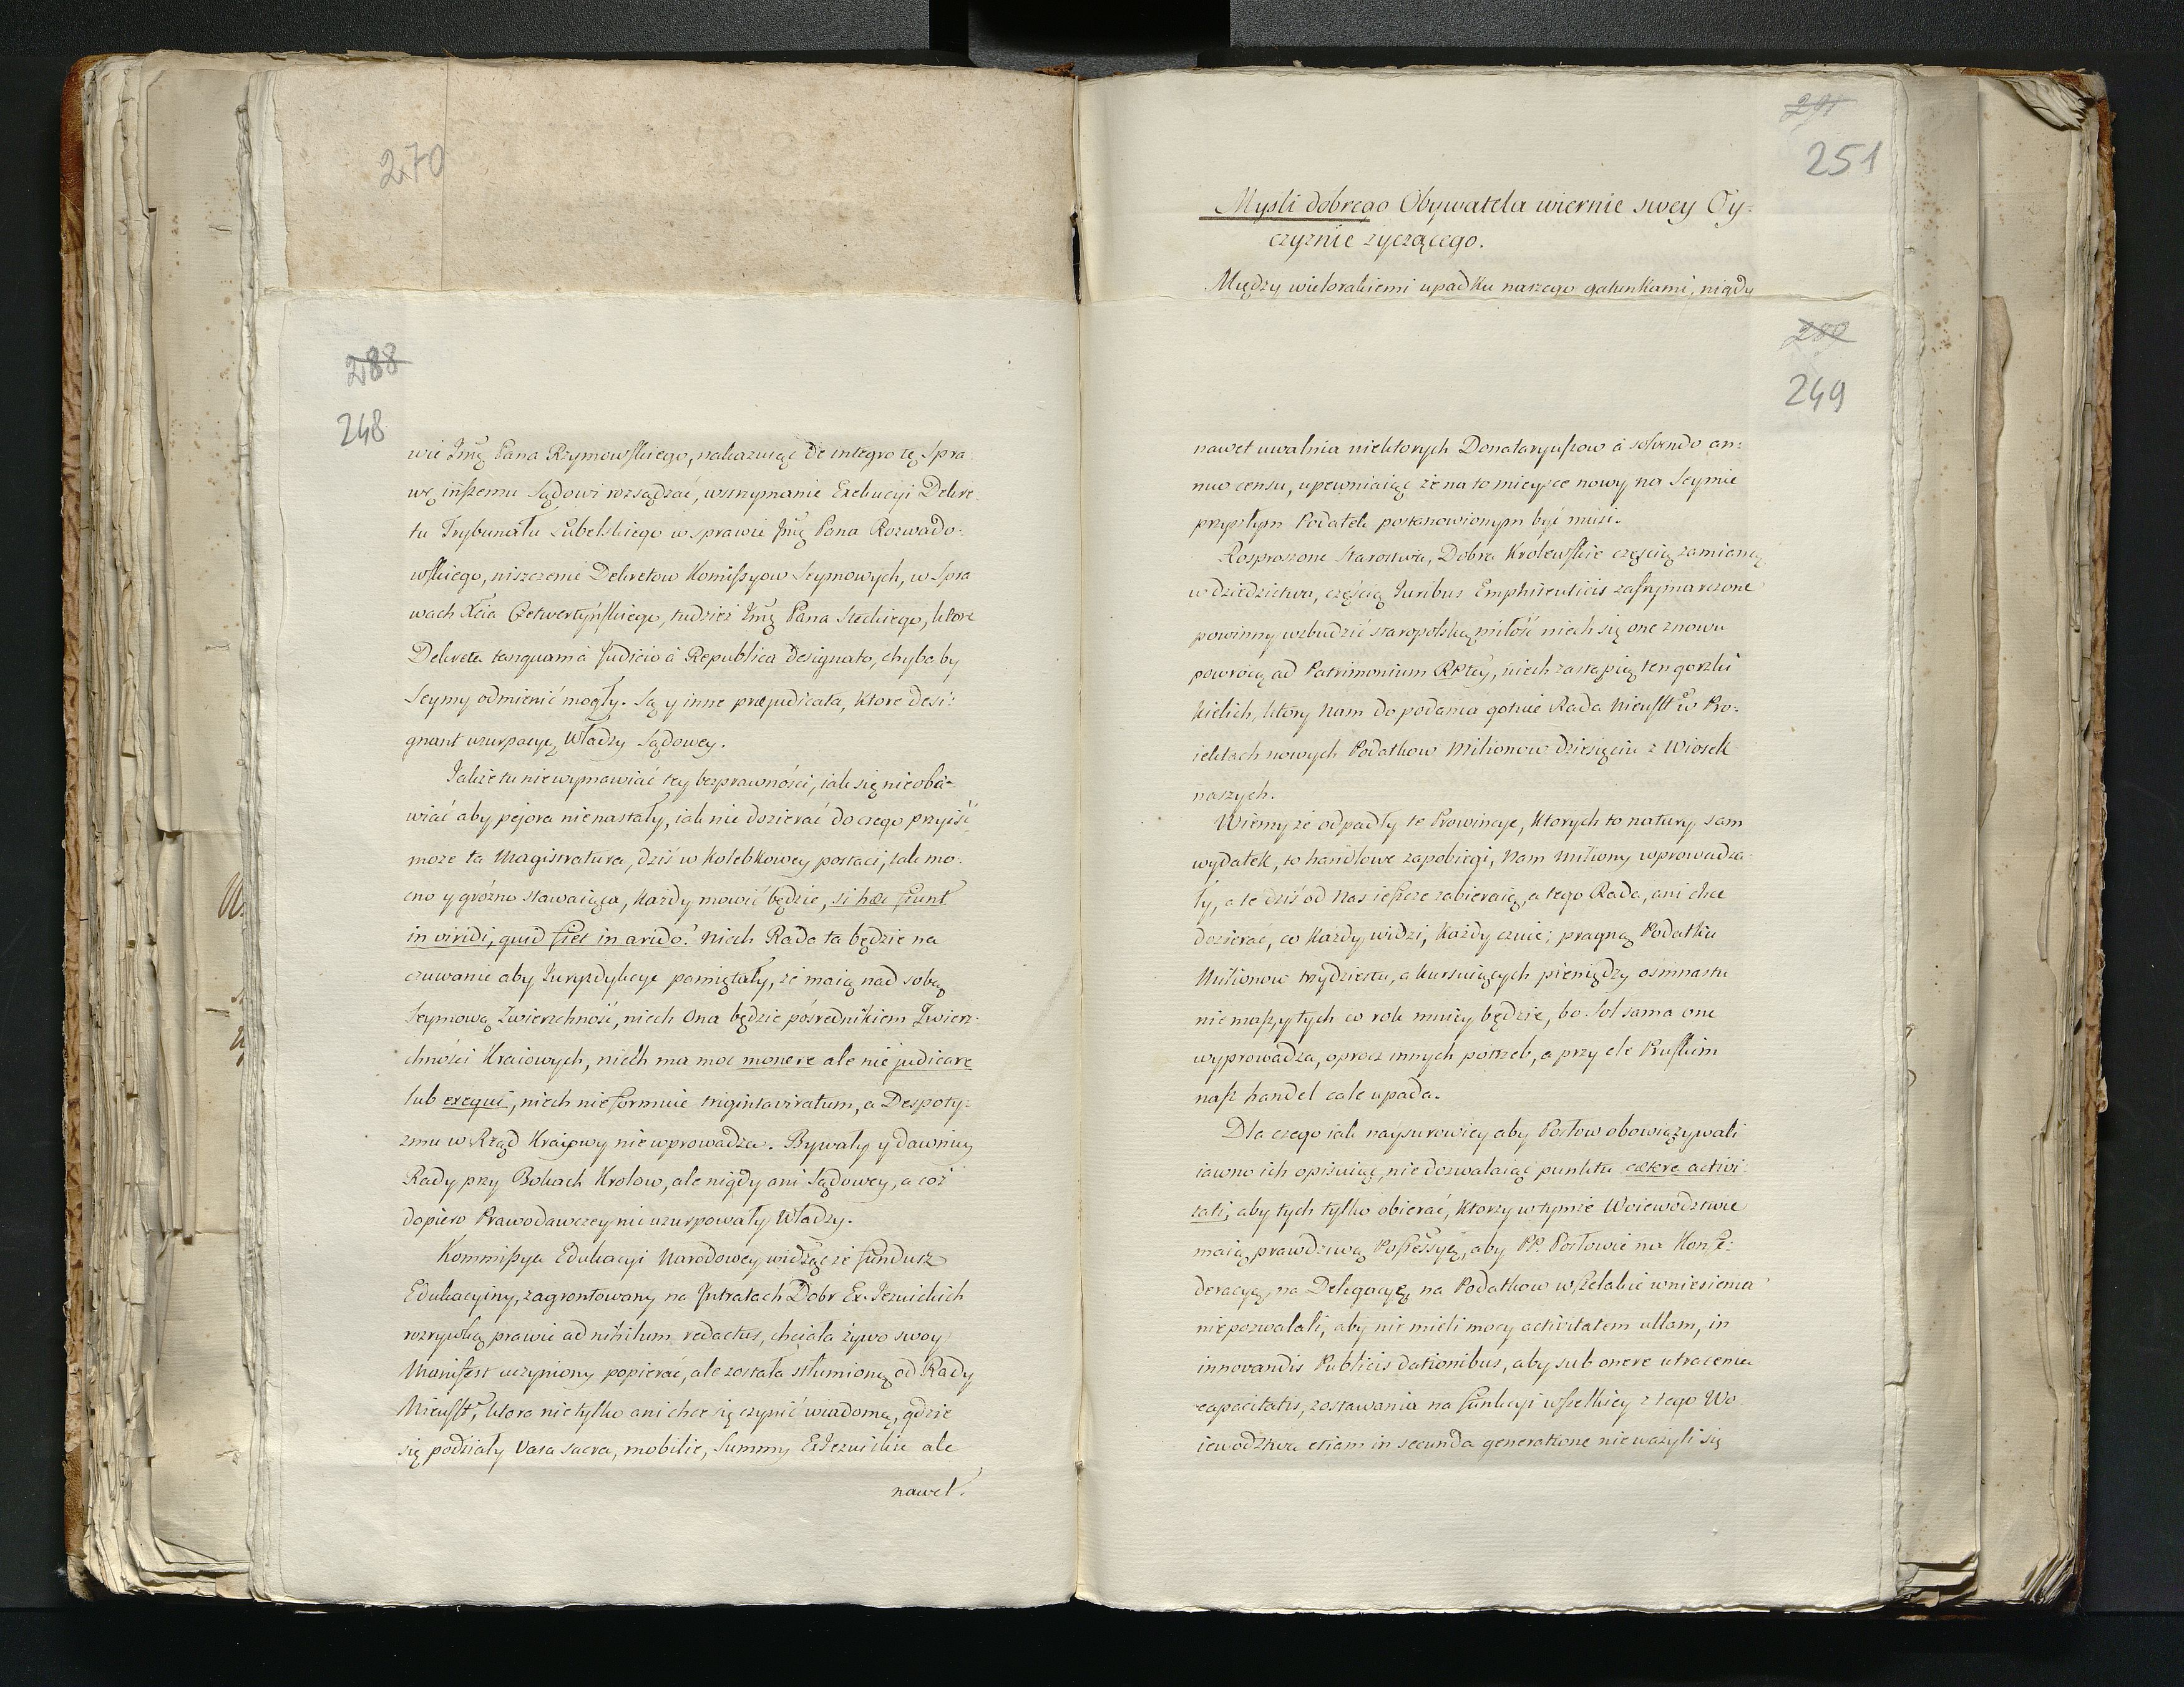 270
288
248
wie Jmę Pana Rzymowskiego, nakazuiąc de integro tę Spra-
wę inszemu Sądowi rozsądzać, wstrzymanie Exekucyi Dekre-
tu Trybunału Lubelskiego w sprawie Jmę Pana Rozwado-
wskiego, niszczenie Dekretow Komissyow Seymowych, w Spra
wach Xcia Czetwertyńskiego, tudzież Jmę Pana Steckiego, ktore
Dekreta tanquam à Judicio à Republica designato, chyba by
Seymy odmienić mogły. Są y inne præjudicata, ktore desi-
gnant uzurpacyę Władzy Sądowey.
Jakże tu nie wymawiać tey bezprawności, iak się nie oba-
wiać aby pejora nie nastały, iak nie dozierać do czego przyiść
może ta Magistratura, dziś w kolebkowey postaci, tak mo-
cno y groźno stawaiąca, każdy mowić będzie, si hæc fiunt
in viridi, quid fiet in arido? niech Rada ta będzie na
czuwanie aby Juryzdykcye pamiętały, że maią nad sobą
Seymową Zwierzchność, niech Ona będzie pośrednikiem Zwierz-
chności Kraiowych, niech ma moc monere ale nie judicare
lub exequi, niech nie formuie trigintaviratum, a Despoty-
zmu w Rząd Kraiowy nie wprowadza. Bywały y dawniey
Rady przy Bokach Krolow, ale nigdy ani Sądowey, a coż
dopiero Prawodawczey nie uzurpowały Władzy.
Kommissya Edukacyi Narodowey widząc że fundusz
Edukacyiny, zagrontowany na Jntratach Dobr Ex-Jezuickich
rozrywką prawie ad nihilum redactus, chciała żywo swoy
Manifest uczyniony popierać, ale została stłumioną od Rady
Nieustt: ktora nie tylko ani chce się czynić wiadomą, gdzie
się podziały Vasa sacra, mobilie, Summy ExJezuickie ale
nawet.
291
251
Mysli dobrego Obywatela wiernie swey Oy-
czyznie zyczącego.
Między wielorakiemi upadku naszego gatunkami, nigdy
280
249
nawet uwalnia niektorych Donataryuszow à solvendo an-
nuo censu, upewniaiąc że na to mieysce nowy na Seymie
przyszłym Podatek postanowionym być musi.
Rosproszone Starostwa, Dobra Krolewskie częścią zamianą
w dziedzictwa, częścią Juribus Emphiteuticis zafrymarczone
powinny wzbudzić staropolską miłość niech się one znowu
powrocą ad Patrimonium RPtey, niech zastąpią ten gorzki
kielich, ktory nam do podania gotuie Rada Nieustt: w Pro-
iektach nowych Podatkow Milionow dziesięciu z Wiosek
naszych.
Wiemy że odpadły te Prowincye, ktorych to natury sam
wydatek, to handlowe zapobiegi, nam miliony wprowadza-
ły, a te dziś od nas ieszcze zabieraią, a tego Rada, ani chce
dozierać, co każdy widzi, każdy czuie; pragną Podatku
Milionow trzydziestu, a kursuiących pieniędzy osmnastu
nie masz, y tych co rok mniey będzie, bo Sol sama one
wyprowadza, oprocz innych potrzeb, a przy cle Pruskim
nasz handel cale upada.
Dla czego iak naysurowiey aby Posłow obowiązywali
iawno ich opisuiąc, nie dozwalaiąc punktu cætere activi-
tati, aby tych tylko obierać, ktorzy w tymże Woiewodztwie
maią prawdziwą Possessyę, aby PP. Posłowie na Konfe-
deracyę, na Delegacyę, na Podatkow wszelakie wniesienia
nie pozwalali, aby nie mieli mocy activitatem ullam, in
innovandis Publicis dationibus, aby sub onere utracenia
capacitatis, zostawania na funkcyi wszelkiey z tego Wo-
iewodztwa etiam in secunda generatione nie ważyli się